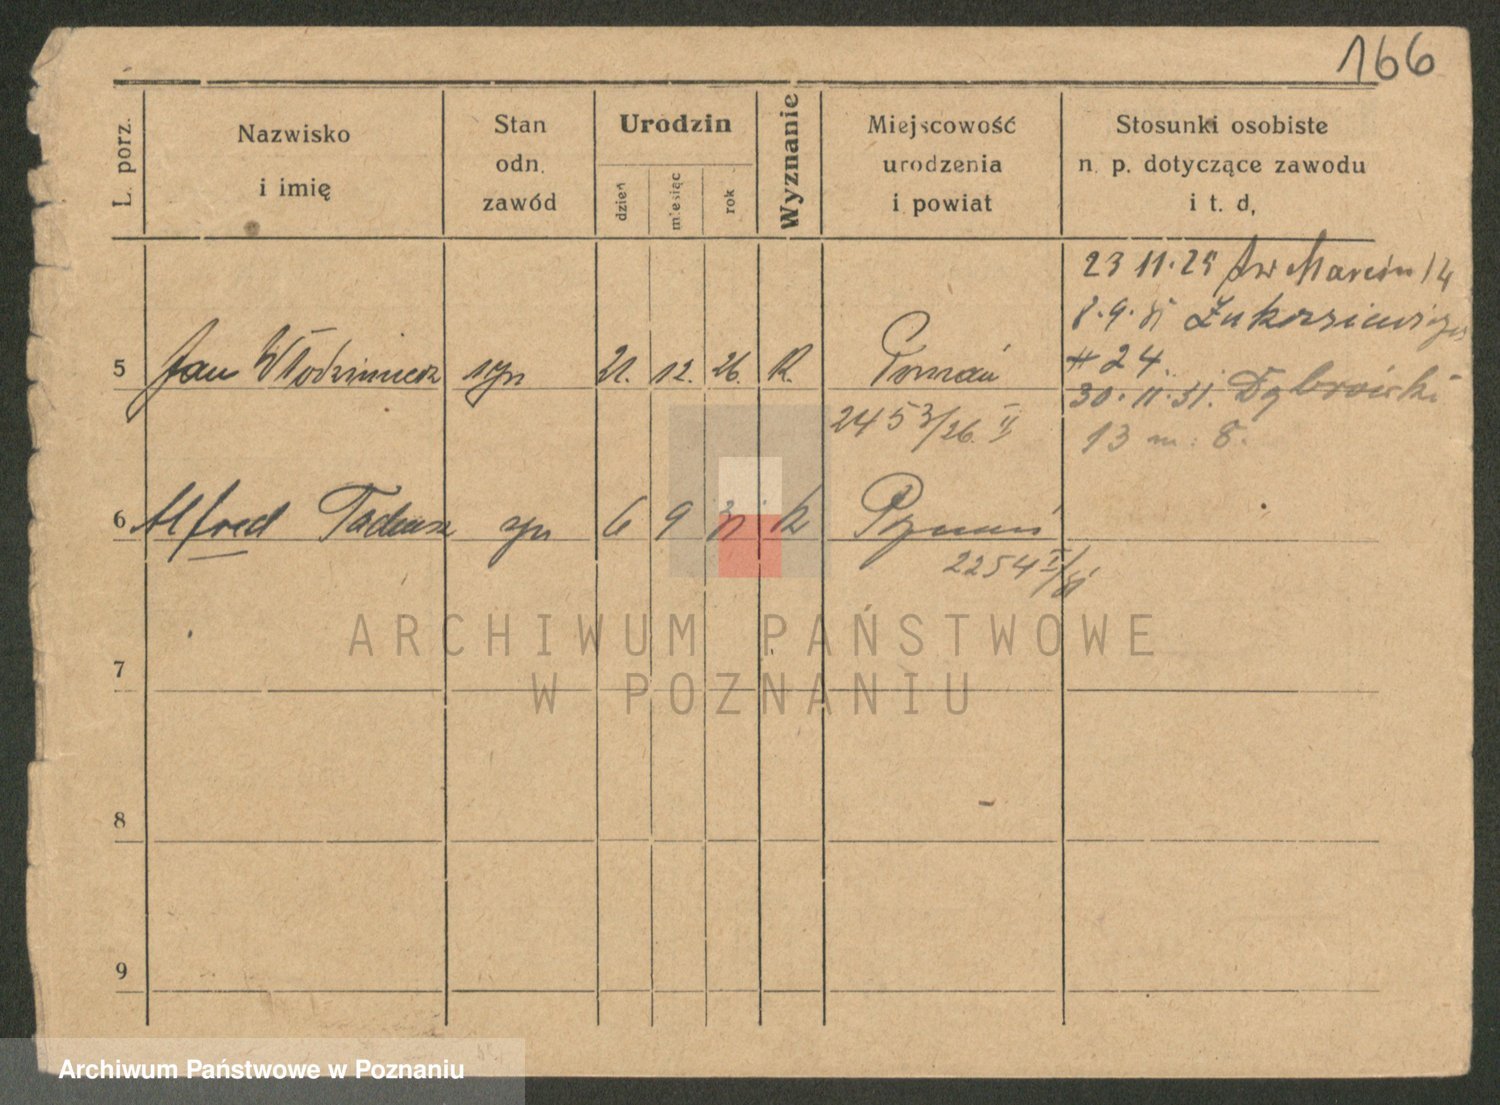 166
L. porz.
Nazwisko
i imię
Stan
odn.
zawód
Urodzin
dzień
miesiąc
rok
Wyznanie
Miejscowość
urodzenia
i powiat
Stosunki osobiste
n. p. dotyczące zawodu
i t. d,
23 11. 29 Św Marcin 14
8. 9. 31
24.
30. 11. 31. Dąbrowski
13 m. 8.
5 Jan Włodzimierz syn 21. 12. 26. R. Poznań
2453/26. II
6 Alfred Tadeusz syn 6 9 31 k Poznań
2254 I/31
7
8
9
ARCHIWUM PAŃSTWOWE
W POZNANIU
Archiwum Państwowe w Poznaniu